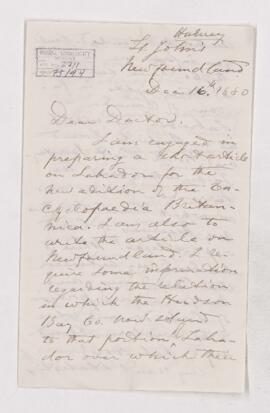 Harvey
St John's
Newfoundland
Dec 16th 1880
Dear Doctor.
I am engaged in
preparing a short article
on Labrador for the
new edition of the En-
cyclopaedia Britan-
nica. I am also to
write the article on
Newfoundland. I re-
quire some information
regarding the relation
in which the Hudson
Bay Co. now stand
to that portion of Labra-
dor over which their